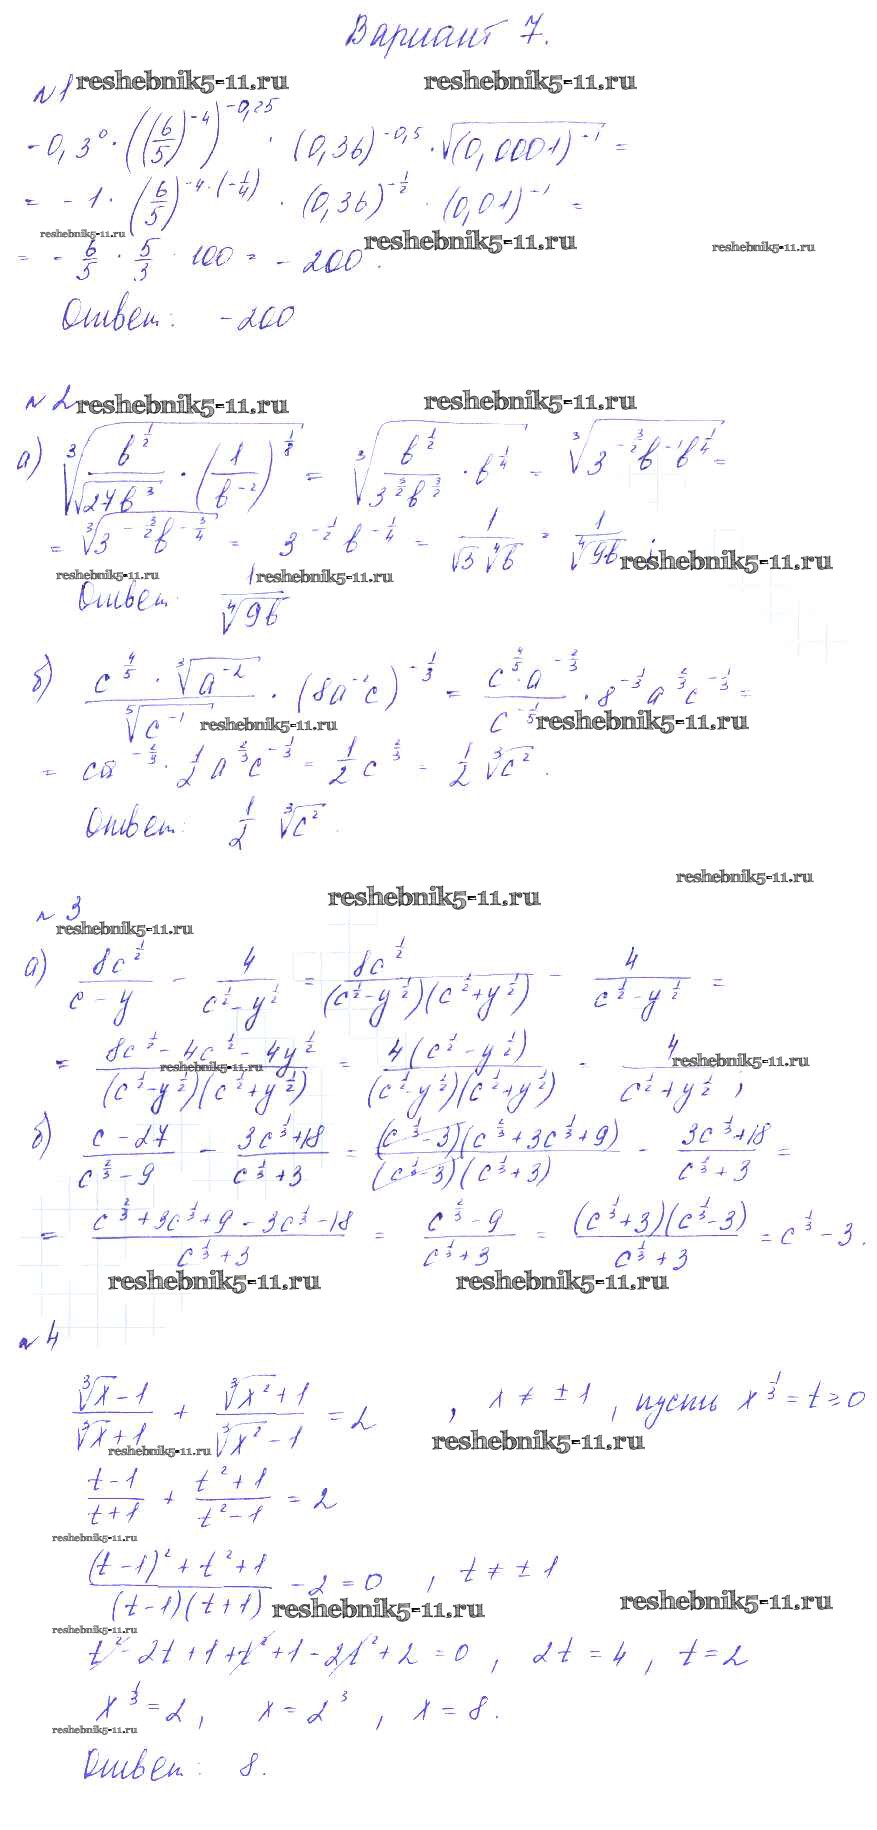 Вариант 7.
reshebnik5-11.ru reshebnik5-11.ru
№1
-0,3⁰ · ((6/5)^-4)^-0,25 · (0,36)^-0,5 · √((0,0001)^-1) =
= -1 · (6/5)^(-4·(-1/4)) · (0,36)^(-1/2) · (0,01)^-1 =
reshebnik5-11.ru reshebnik5-11.ru reshebnik5-11.ru
= - 6/5 · 5/3 · 100 = -200.
Ответ: -200
№2
reshebnik5-11.ru reshebnik5-11.ru
а) ∛(b^(1/2)/√(27b³) · (1/b^-2)^(1/8)) = ∛(b^(1/2)/(3^(3/2)b^(3/2)) · b^(1/4)) = ∛(3^(-3/2)b^-1b^(1/4)) =
= ∛(3^(-3/2)b^(-3/4)) = 3^(-1/2)b^(-1/4) = 1/(√3 ∜b) = 1/∜(9b) ;
reshebnik5-11.ru reshebnik5-11.ru reshebnik5-11.ru
Ответ: 1/∜(9b)
б) (c^(4/5) · ∛(a^-2))/⁵√(c^-1) · (8a^-1c)^(-1/3) = (c^(4/5) · a^(-2/3))/c^(-1/5) · 8^(-1/3)a^(2/3)c^(-1/3) =
reshebnik5-11.ru reshebnik5-11.ru
= ca^(-2/3) · 1/2 a^(2/3)c^(-1/3) = 1/2 c^(2/3) = 1/2 ∛(c²).
Ответ: 1/2 ∛(c²).
reshebnik5-11.ru
reshebnik5-11.ru
№3
reshebnik5-11.ru
а) 8c^(1/2)/(c-y) - 4/(c^(1/2)-y^(1/2)) = 8c^(1/2)/((c^(1/2)-y^(1/2))(c^(1/2)+y^(1/2))) - 4/(c^(1/2)-y^(1/2)) =
= (8c^(1/2)-4c^(1/2)-4y^(1/2))/((c^(1/2)-y^(1/2))(c^(1/2)+y^(1/2))) = 4(c^(1/2)-y^(1/2))/((c^(1/2)-y^(1/2))(c^(1/2)+y^(1/2))) - 4/(c^(1/2)+y^(1/2)) ;
reshebnik5-11.ru reshebnik5-11.ru
б) (c-27)/(c^(2/3)-9) - (3c^(1/3)+18)/(c^(1/3)+3) = ((c^(1/3)-3)(c^(2/3)+3c^(1/3)+9))/((c^(1/3)-3)(c^(1/3)+3)) - (3c^(1/3)+18)/(c^(1/3)+3) =
= (c^(2/3)+3c^(1/3)+9-3c^(1/3)-18)/(c^(1/3)+3) = (c^(2/3)-9)/(c^(1/3)+3) = ((c^(1/3)+3)(c^(1/3)-3))/(c^(1/3)+3) = c^(1/3)-3.
reshebnik5-11.ru reshebnik5-11.ru
№4
(∛x-1)/(∛x+1) + (∛(x²)+1)/(∛(x²)-1) = 2 , x ≠ ±1 , пусть x^(1/3) = t ≥ 0
reshebnik5-11.ru reshebnik5-11.ru
(t-1)/(t+1) + (t²+1)/(t²-1) = 2
reshebnik5-11.ru
((t-1)²+t²+1)/((t-1)(t+1)) - 2 = 0 , t ≠ ±1
reshebnik5-11.ru reshebnik5-11.ru
reshebnik5-11.ru
t² - 2t + 1 + t² + 1 - 2t² + 2 = 0 , 2t = 4 , t = 2
x^(1/3) = 2 , x = 2³ , x = 8.
reshebnik5-11.ru
Ответ: 8.